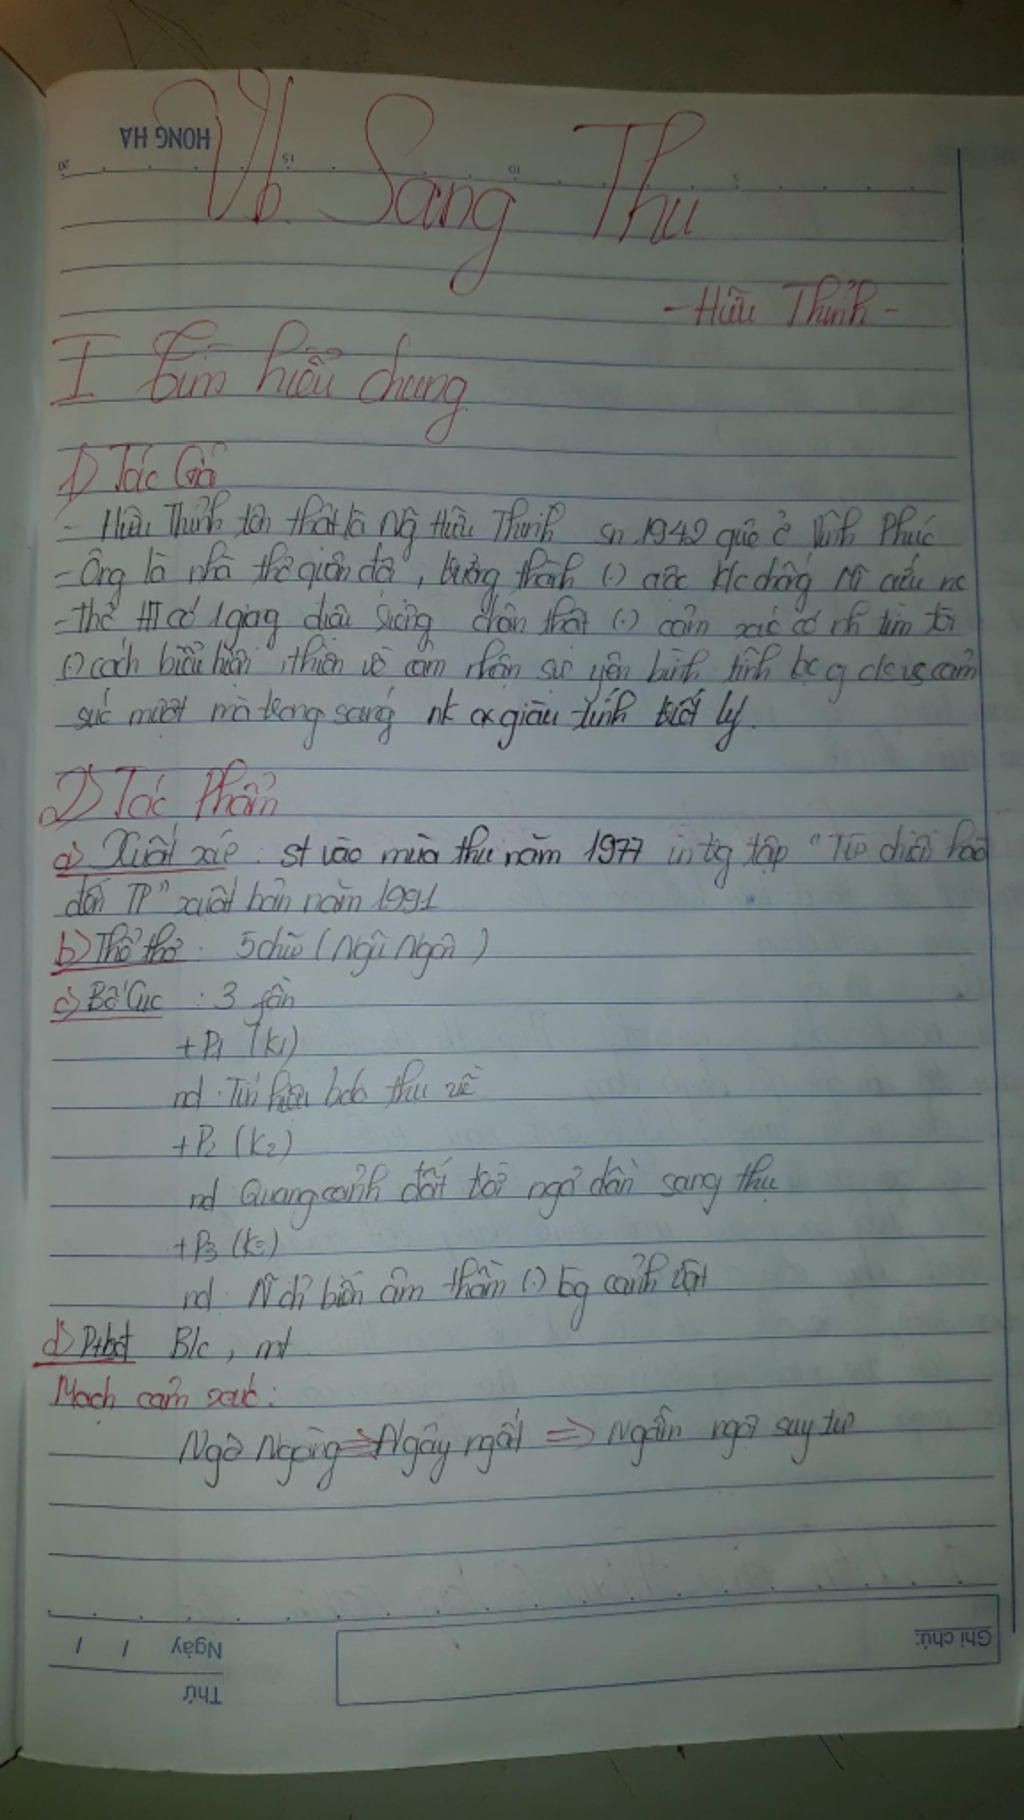 HONG HA
20 15 10 5
Vb. Sang Thu
- Hữu Thỉnh -
I Tìm hiểu chung
1) Tác Giả
- Hữu Thỉnh tên thật là Ng Hữu Thỉnh sn 1942 quê ở Vĩnh Phúc
- Ông là nhà thơ quân đội, trưởng thành (.) cuộc k/c chống Mĩ cứu nc
- Thơ HT có 1 giọng điệu riêng chân thật (.) cảm xúc có tìm tòi
(.) cách biểu hiện, thiên về cảm nhận sự yên bình tình cảm
xúc mượt mà trong sáng giàu tính triết lý.
2) Tác Phẩm
a) Xuất xứ: st vào mùa thu năm 1977 in tg tập "Từ chiến hào
đến TP" xuất bản năm 1991
b) Thể thơ: 5 chữ (Ngũ Ngôn)
c) Bố Cục: 3 fần
+ P1 (k1)
nd: Tín hiệu báo thu về
+ P2 (k2)
nd Quang cảnh đất trời ngả dần sang thu
+ P3 (k3)
nd: biến âm thầm (.) lòg cảnh vật
d) Ptbđ B/c, mt
Mạch cảm xúc:
Ngỡ Ngàng => Ngây ngất => Ngẫm ngợi suy tư
Ghi chú:
Ngày / /
Thứ